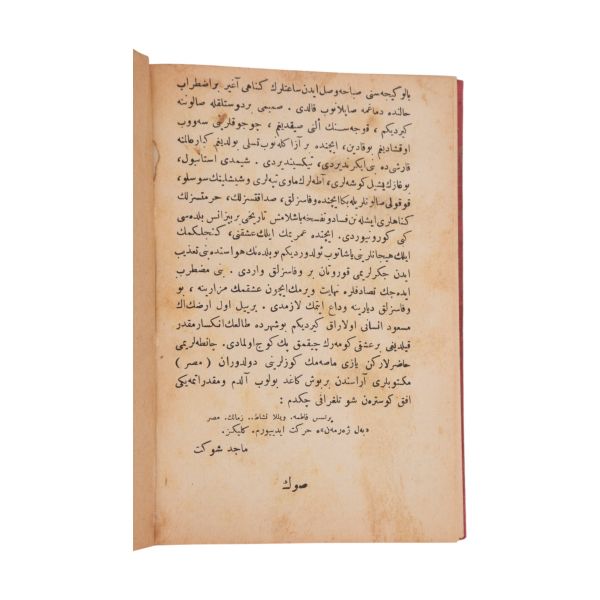 بالو گیجه‌سنی صباحه وصل ایدن ساعتلرك گناهی آغیر بر اضطراب
حالنده دماغمه صاپلانوب قالدی . صمیمی بر دوستلقله صالوننه
کیردیکم ، قوجه‌سنك ألنی صیقدیغم ، چوجوقلرینی سه‌ووب
اوقشادیغم بو قادین ، ایچنده بر آز اکله‌نوب تسلی بولدیغم کبار عالمنه
قارشی ده بنی ایکرندیردی ، تیکسیندیردی . شیمدی استانبول ،
بوغازك یشیل کوشه‌لری ، آطه‌لرك ماوی تپه‌لری و شیشلینك سوسلو ،
قوقولی صالونلریله بکا ایچنده وفاسزلق ، صداقتسزلك ، حرمتسزلك
گناهلری ایشله‌نن فساد و تفسخه باشلامش تاریخی بر بیزانس بلده‌سی
کبی کورونیوردی . ایچنده عمرمك ایلك عشقنی ، کنجلکمك
ایلك هیجانلرینی یاشاتوب ئولدوردیکم بو بلده‌نك هواسنده بنی تعذیب
ایدن جکرلریمی قوروتان بر وفاسزلق واردی . بنی مضطرب
ایده‌جك تصادفلره نهایت ویرمك ایچون عشقمك مزارینه ، بو
وفاسزلق دیارینه وداع ایتمك لازمدی . بر ییل اول ارضك اك
مسعود انسانی اولارق کیردیکم بو شهردن طالعك انکسار مقدر
قیلدیغی بر عشقی کومه‌رك چیقمق پك کوج اولمادی . چانطه‌لریمی
حاضرلارکن یازی ماصه‌مك کوزلرینی دولدوران ( مصر )
مکتوبلری آراسندن بر بوش کاغد بولوب آلدم و مقدراتمه یکی
افق کوستره‌ن شو تلغرافی چکدم :
پرنسس فاطمه . ویللا نشاط .. زمالك . مصر
«به‌ل ژه‌رمه‌ن» ه حرکت ایدییورم . کلیکز .
ماجد شوکت
صوك